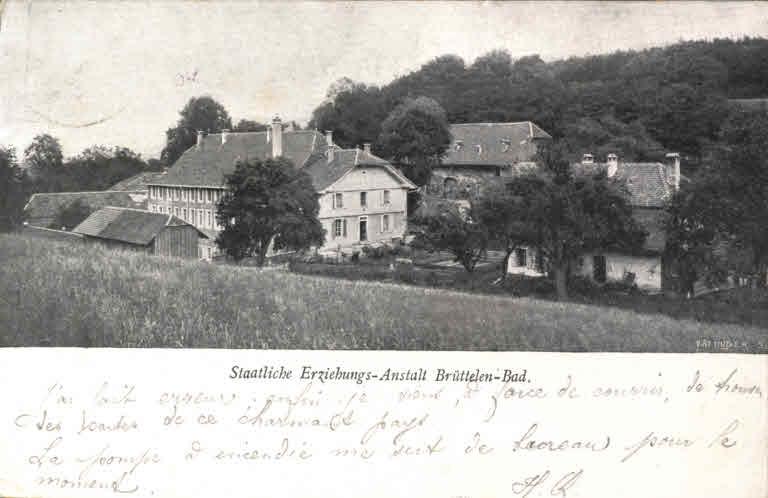 Staatliche Erziehungs-Anstalt Brüttelen-Bad.
J'ai fait erreur enfin je viens, à force de courir, de trouver
des  de ce charmant pays
La pompe à incendie me sert de bureau pour le
moment.
H. R.